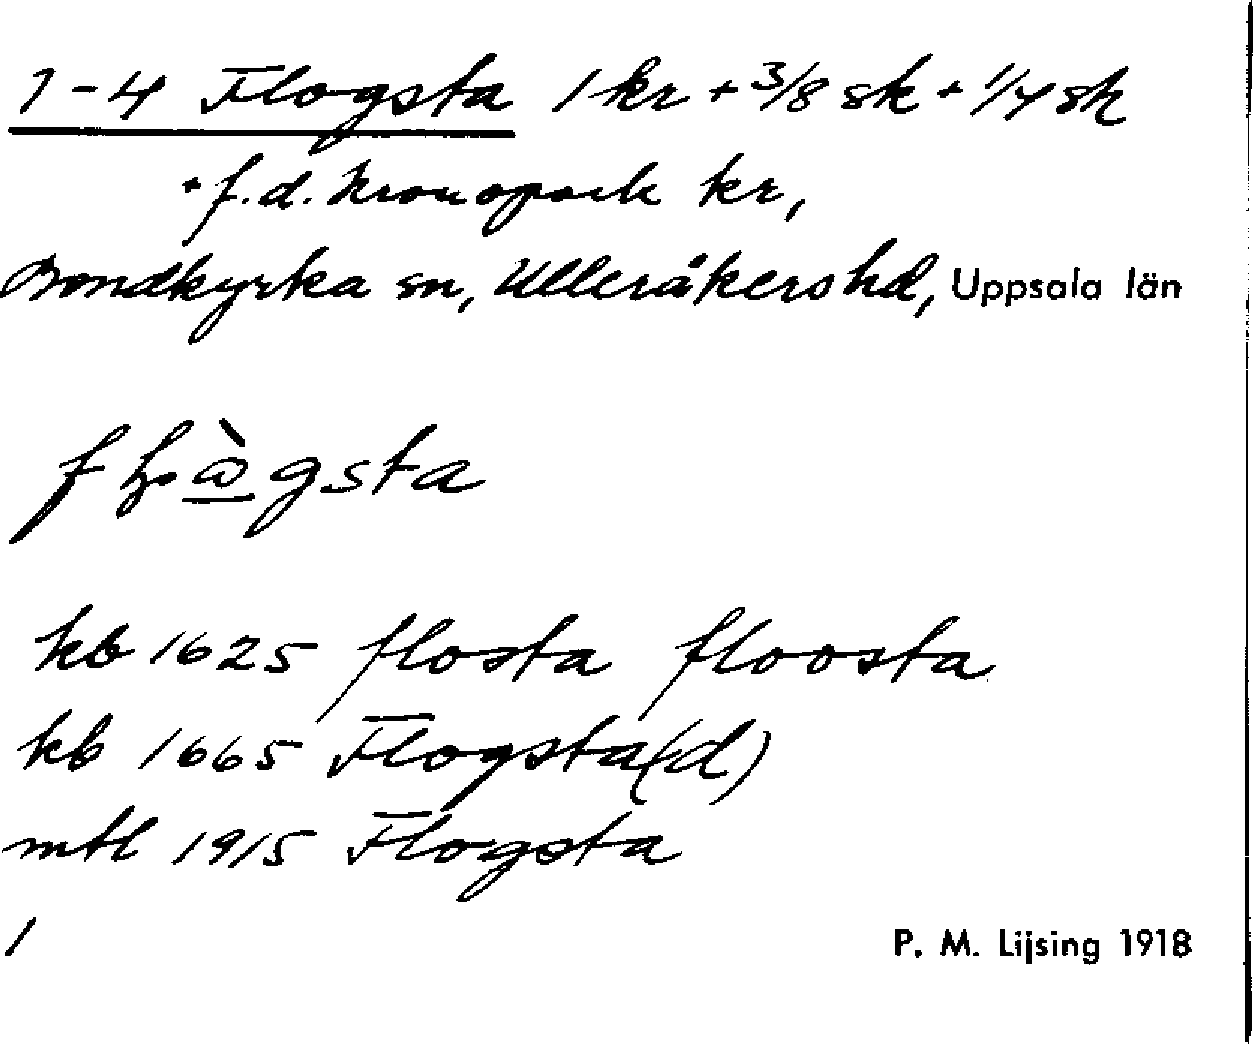 1-4 Flogsta 1 kr + 3/8 sk + 1/4 sk
+ f.d. kronopark kr,
Bondkyrka sn, Ulleråkers hd, Uppsala län
kb 1625 flosta floosta
kb 1665 Flogsta(d)
mtl 1915 Flogsta
1
P. M. Lijsing 1918